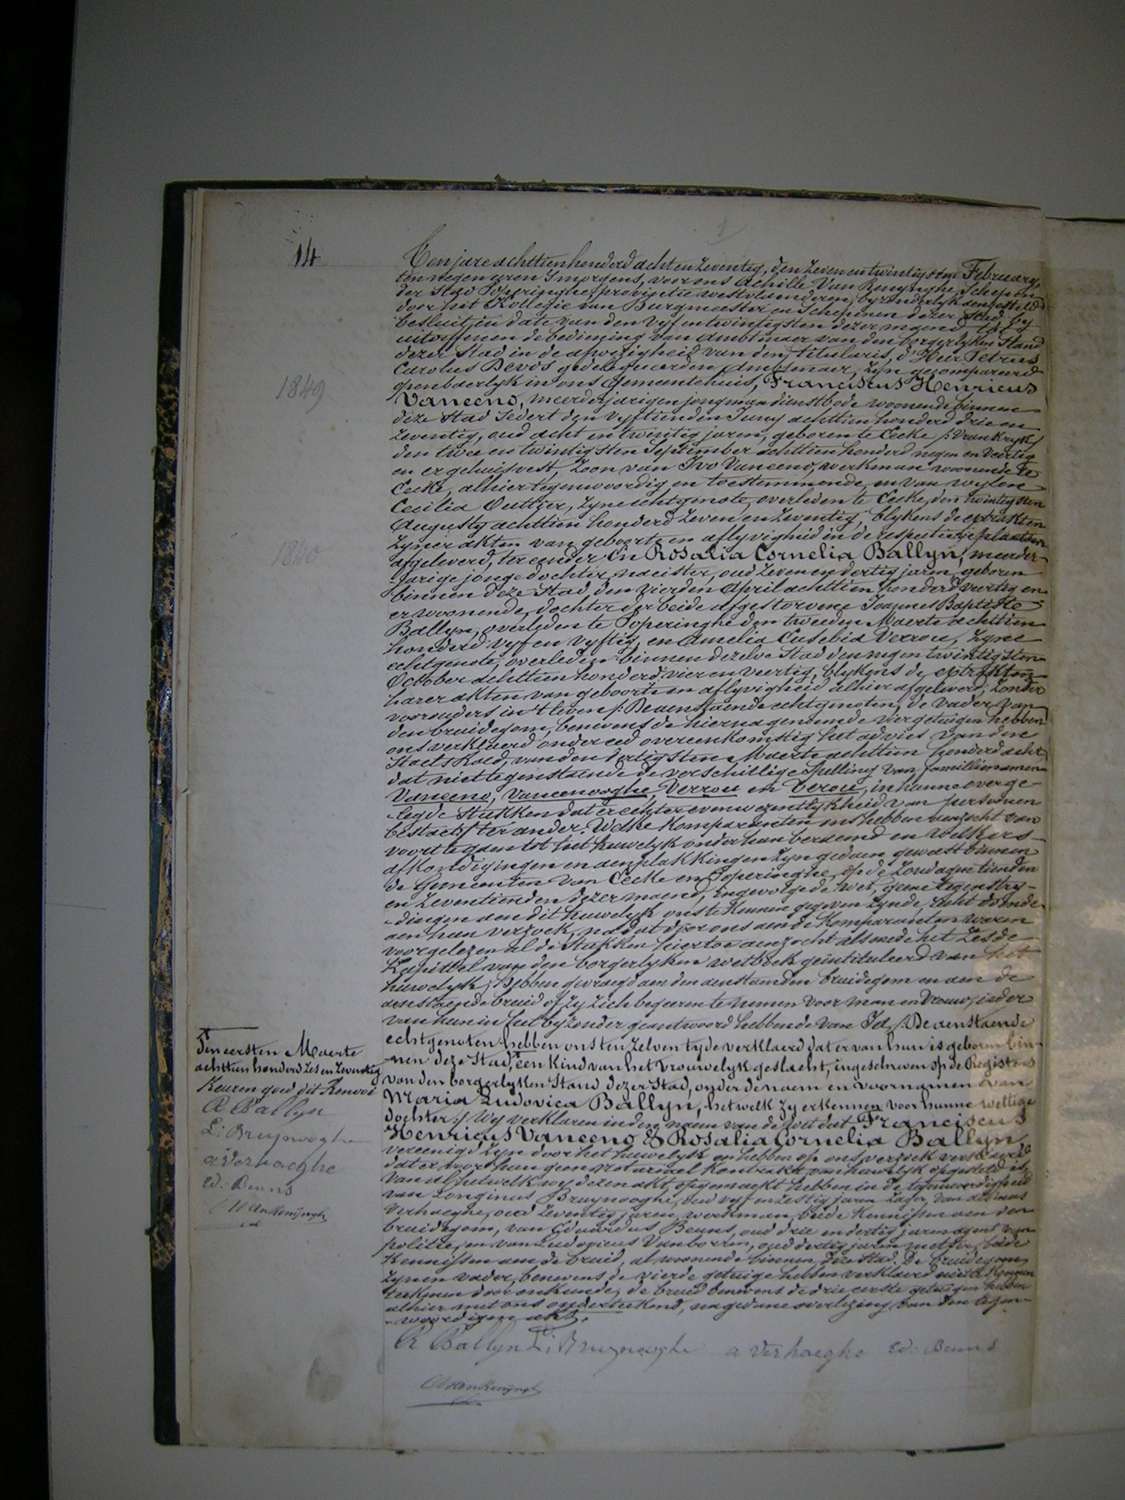 14
Ten jare achttien honderd acht en zeventig, den zeven en twintigsten February,
ten negen uren smorgens, voor ons Achille Van Renynghe, Schepen
der Stad Poperinghe, provintie westvlaenderen, byzonderlyk
door het Kollegie van Burgmeester en Schepenen dezer Stad, by
besluit in date van den vyf en twintigsten dezer maend
uitoeffenen de bediening van Ambtenaer van den borgerlyken Stand
dezer Stad in de afwezigheid van den titularis, d'Heer Petrus
Carolus Devos gedelegueerden Ambtenaer, zyn gecompareerd
openbaerlyk in ons Gemeentehuis, Franciscus Henricus
1849
Vaneeno, meerderjarigen jongman dienstbode woonende binnen
deze Stad sedert den vyftienden Juny achttien honderd drie en
zeventig, oud acht en twintig jaren, geboren te Eecke (Vrankryk)
den twee en twintigsten September achttien honderd negen en veertig
en er gehuisvest, Zoon van Ivo Vaneeno, werkman woonende te
Eecke, alhier tegenwoordig en toestemmende, en van wylen
Cecilia Outtier, zyne echtgenote, overleden te Eecke, den twintigsten
Augusty achttien honderd zeven en zeventig blykens de extrakten
zyner akten van geboorte en aflyvigheid in de respectieve plaatsen
1840
afgeleverd, ter eender. En Rosalia Cornelia Ballyn, meerder-
jarige jonge dochter, naeister, oud zeven en dertig jaren, geboren
binnen deze Stad, den vierden April achttien honderd veertig en
er woonende, dochter der beide afgestorvene Joannes Baptiste
Ballyn, overleden te Poperinghe den tweeden Maerte achttien
honderd vyf en vyftig, en Amelia Eusebia Verrou, zyne
echtgenote, overleden binnen dezelve Stad den negen twintigsten
October achttien honderd vier en veertig, blykens de extrakten
harer akten van geboorte en aflyvigheid alhier afgeleverd, zonder
voorouders in 't leven. De aenstaende echtgenoten, de vader van
den bruidegom, benevens de hierna genoemde vier getuigen hebben
ons verklaerd onder eed overeenkomstig het advies van den
Staets Raed, van den dertigsten Maerte achttien honderd acht,
dat niettegenstaende de verschillige spelling van familienamen
Vaneeno, Vaneenooghe, Verrou en Verou, in hunne overge-
legde stukken dat er echter evenwezentlykheid van persoonen
bestaet, ter ander. Welke komparanten ons hebben verzocht van
voort te gaen tot het huwelyk onder hun beraemd en welkers
afkondigingen en aenplakkingen zyn gedaen geweest binnen
de Gemeenten van Eecke en Poperinghe, op de Zondagen tienden
en zeventienden dezer maend, ingevolge de wet, geene tegenstry-
dingen aen dit huwelyk ons te kennen gegeven zynde, recht doende
aen hun verzoek, na dat door ons aen de komparanten waren
voorgelezen al de stukken hiertoe aenzocht alsmede het Zesde
Kapittel van den borgerlyken wetboek geintituleerd van het
huwelyk, Hebben gevraegd aen den aenstaenden bruidegom en aen de
aenstaende bruid of zy zich begeeren te nemen voor man en vrouw, ieder
van hun in het byzonder geantwoord hebbende van Ja. De aenstaende
echtgenoten hebben ons ten zelven tyde verklaerd dat er van hun is geboren bin-
nen deze Stad, een kind van het vrouwelyk geslacht, ingeschreven op de Registers
van den borgerlyken Stand dezer Stad, onder de naem en voornamen van
Maria Ludovica Ballyn, hetwelk zy erkennen voor hunne wettige
dochter. Wy verklaren in den naem van de wet dat Franciscus
Henricus Vaneeno & Rosalia Cornelia Ballyn,
vereenigd zyn door het huwelyk en hebben op ons verzoek verklaerd
dat er door hun geen notarieel kontrakt van huwelyk opgesteld is,
Van al hetwelk wy dezen akt opgemaekt hebben in de tegenwoordigheid
van Longinus Bruynooghe, oud vyf en zestig jaren,
Verhaeghe, oud zeventig jaren, werkman, beide kennissen aen den
bruidegom, van Eduardus Beuns, oud drie en dertig jaren agent van
politie, en van Ludovicus Vanborm, oud dertig jaren, beide
kennissen aen de bruid, al woonende binnen deze Stad. De bruidegom,
zynen vader, benevens de vierde getuige hebben verklaerd niet te kunnen
teekenen door onkunde, de bruid benevens de drie eerste getuigen hebben
alhier met ons onderteekend, na gedane overlezing van den tegen-
woordigen akt.
R Ballyn L: Bruynooghe a Verhaeghe Ed. Beuns
A Van Renynghe
Ten eersten Maerte
achttien honderd zes en zeventig
Keuren goed dit Renvooi
R Ballyn
L: Bruynooghe
a Verhaeghe
Ed. Beuns
A Van Renynghe